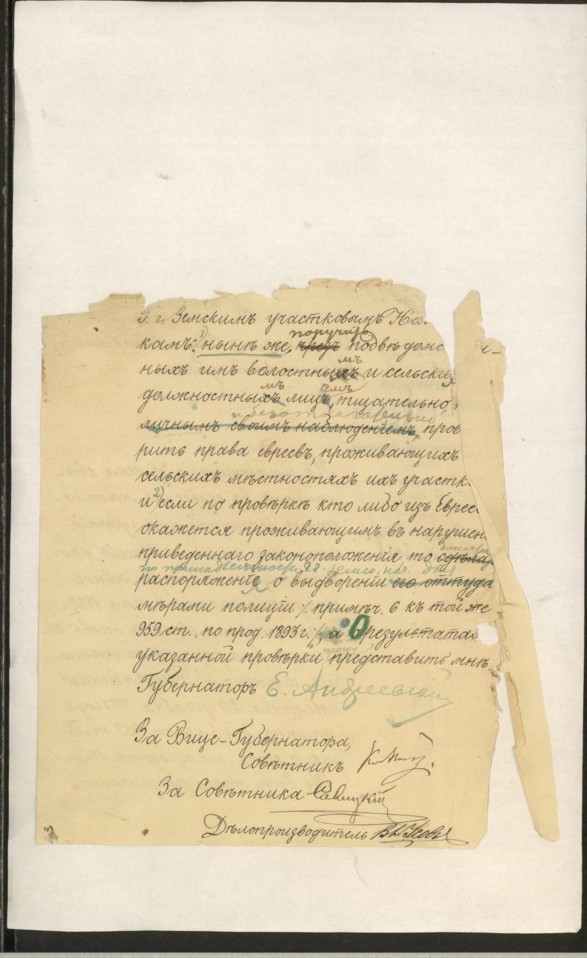 Земскимъ участковымъ
поручить
камъ: 1) нынѣ же, чрезъ подвѣдомс
мъ
ныхъ имъ волостныхъ и сельских
мъ амъ
должностныхъ лицъ, тщательно,
личнымъ своимъ наблюденіемъ, прове
рить права евреевъ, проживающихъ
сельскихъ мѣстностяхъ ихъ участк
и 2) если по провѣркѣ кто либо изъ Евре
окажется проживающимъ въ нарушен
приведеннаго законоположенія то сдѣла
распоряженіе о выдвореніи его оттуда
мѣрами полиціи / примѣч. 6 къ той же
959 ст., по прод. 1893 г. /, а О результатах
указанной провѣрки представить мнѣ
Губернаторъ Е. Андреевскій
За Вице-Губернатора,
Совѣтникъ
За Совѣтника Савицкій
Дѣлопроизводитель